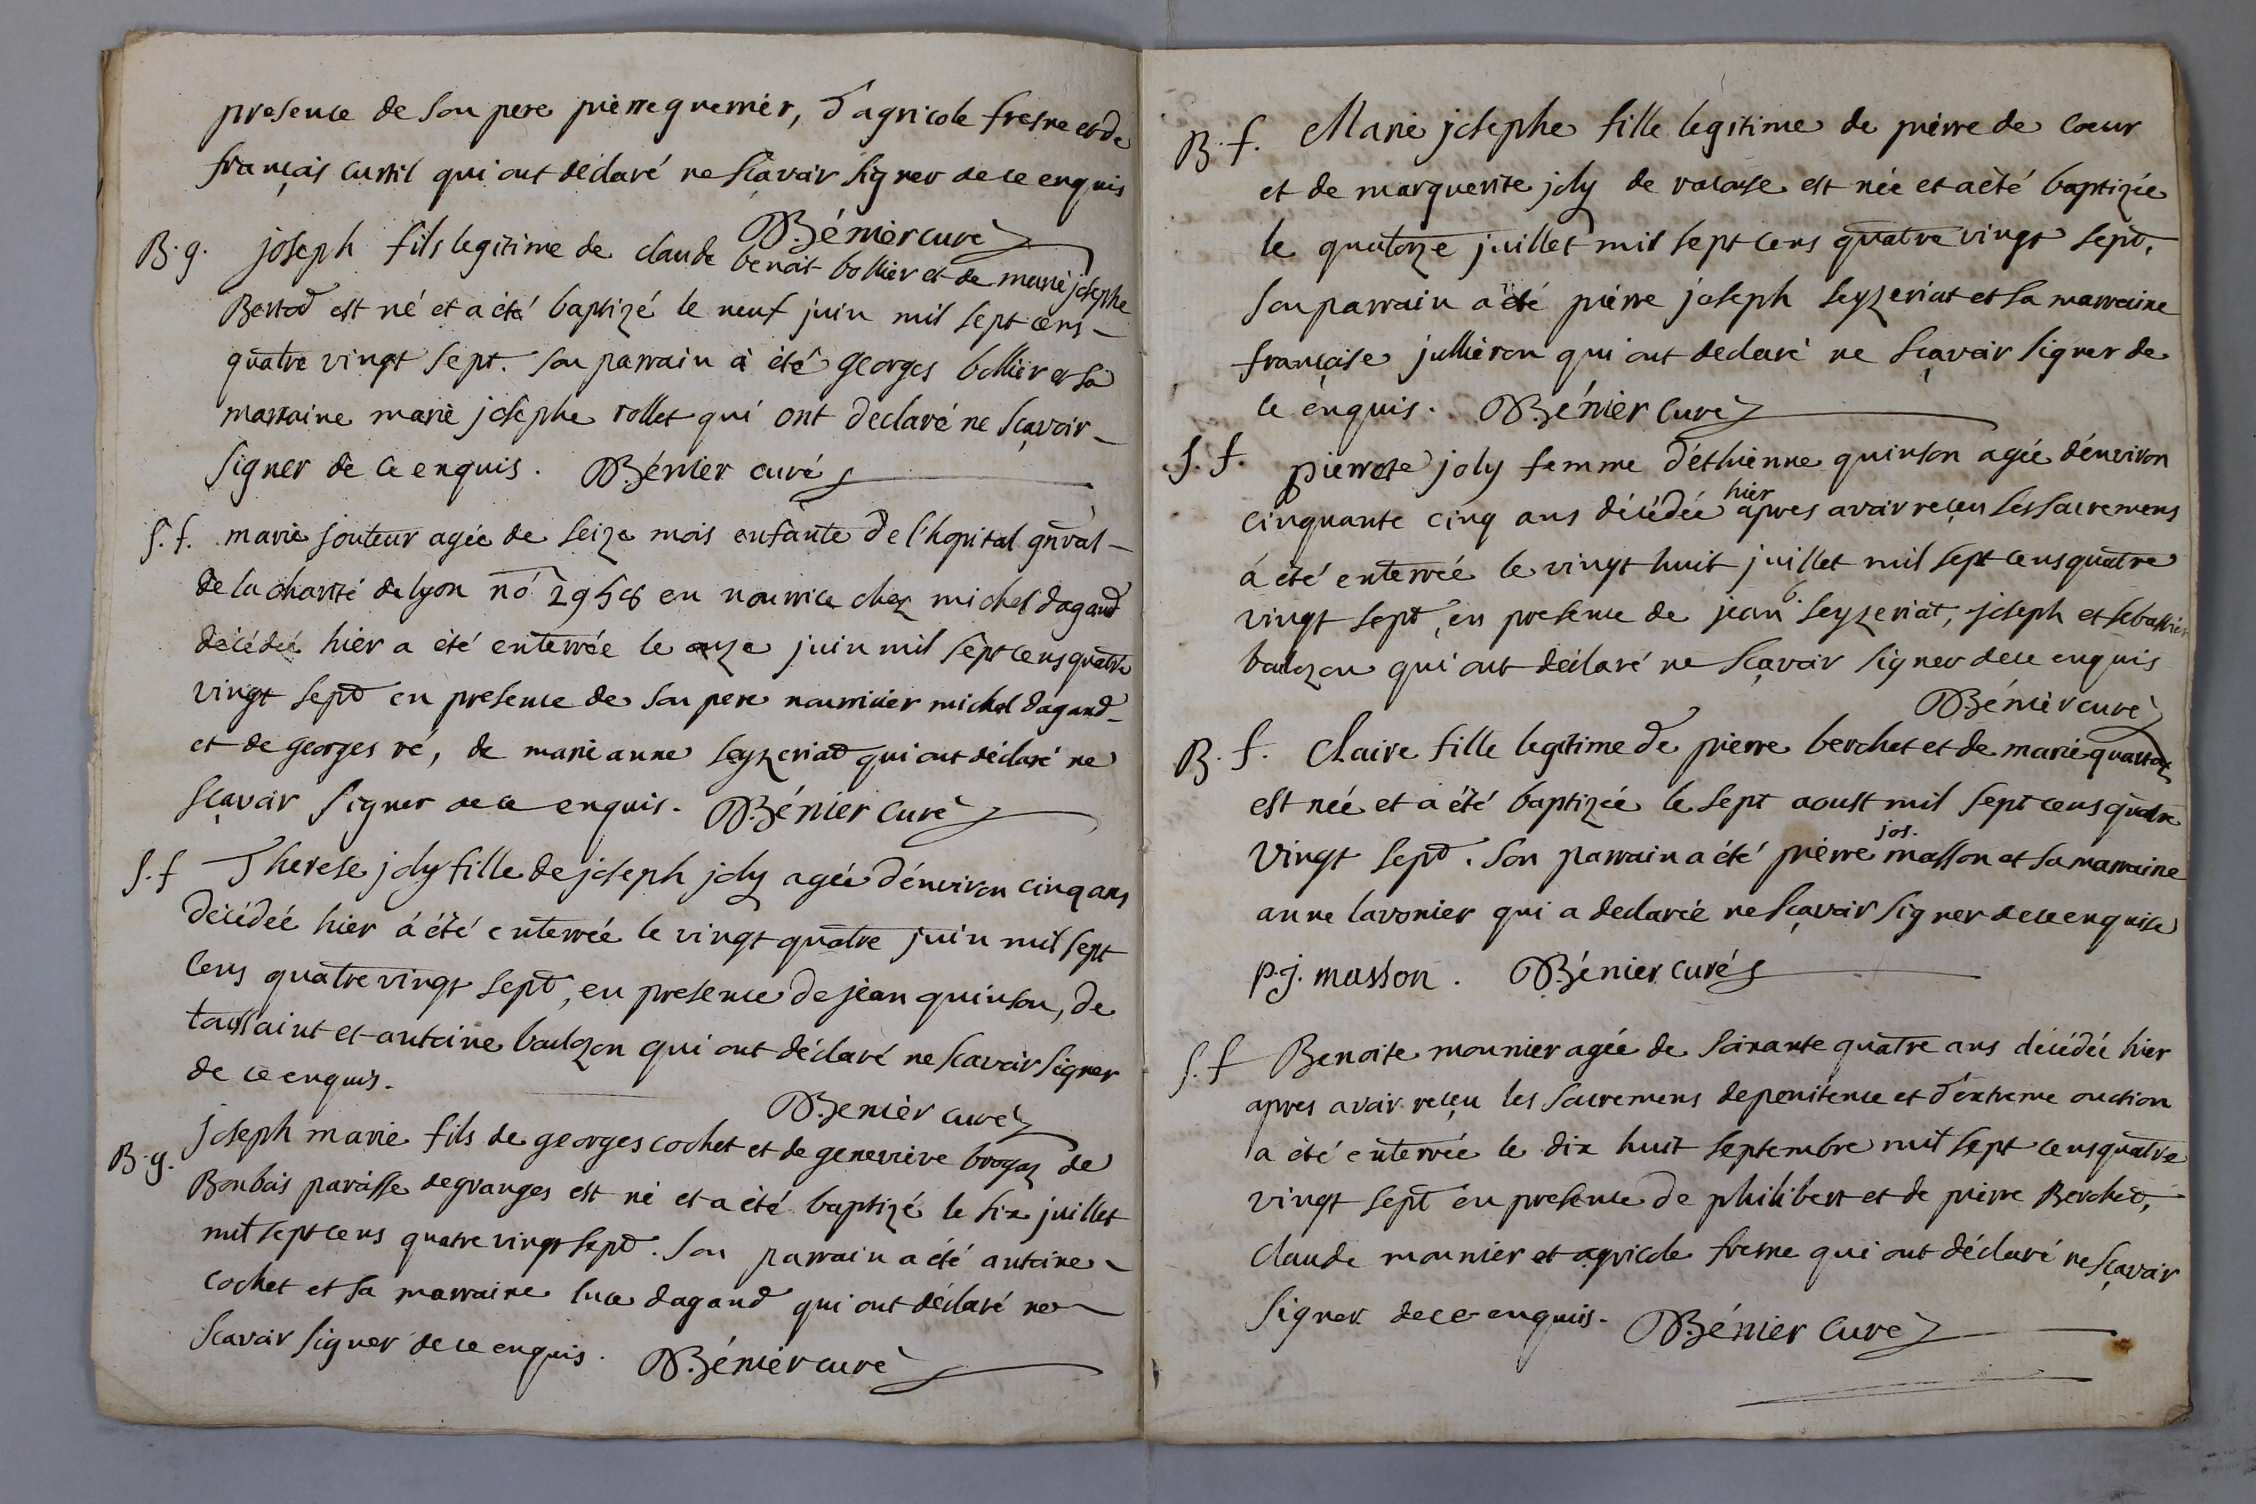 presence de son pere pierre guerrier, d'agricole fresne et de
françois curtil qui ont déclaré ne sçavoir signer de ce enquis
Bénier curé
B. g. joseph fils legitime de claude benoit bollier et de marie josephe
Bertod est né et a été baptizé le neuf juin mil sept cens
quatre vingt sept. son parrain à été georges bollier et sa
marraine marie josephe rollet qui ont declaré ne sçavoir
signer de ce enquis. Bénier curé
S. f. marie jouteur agée de seize mois enfante de l'hopital gnral
de la charité de lyon nó en nourrice chez michel dagand
décédée hier a été enterrée le onze juin mil sept cens quatre
vingt sept en presence de son pere nourricier michel dagand
et de georges ré, de marie anne seyzeriat qui ont déclaré ne
sçavoir signer de ce enquis. Bénier curé
S. f Therese joly fille de joseph joly agée d'environ cinq ans
décédée hier á été enterrée le vingt quatre juin mil sept
cens quatre vingt sept, en presence de jean quinson, de
toussaint et antoine baulzon qui ont déclaré ne scavoir signer
de ce enquis.
Bénier curé
B. g. joseph marie fils de georges cochet et de geneviève brogaz de
Bonbois paroisse de granges est né et a été baptizé le six juillet
mil sept cens quatre vingt sept. son parrain a été antoine
cochet et sa marraine luce dagand qui ont déclaré ne
scavoir signer de ce enquis. Bénier curé
B. f. Marie josephe fille legitime de pierre de coeur
et de marguerite joly de valouse est née et a été baptizée
le quatorze juillet mil sept cens quatre vingt sept,
son parrain a été pierre joseph seyzeriat et sa marraine
françoise jullieron qui ont declaré ne sçavoir signer de
ce enquis. Bénier curé
S. f. pierrete joly femme d'éthienne quinson agée d'environ
cinquante cinq ans décédée hier apres avoir reçeu les sacremens
á été enterrée le vingt huit juillet mil sept cens quatre
vingt sept, en presence de jean b. seyzeriat, joseph et sebastien
baulzon qui ont déclaré ne sçavoir signer de ce enquis
Bénier curé
B. f. Claire fille legitime de pierre berchet et de marie quartoz
est née et a été baptizée le sept aoust mil sept cens quatre
vingt sept. son parrain a été pierre jos. masson et sa marraine
anne lavonier qui a declarée ne sçavoir signer de ce enquise
p. j. masson. Bénier curé
S. f Benoite mounier agée de soixante quatre ans décédée hier
apres avoir reçeu les sacremens de penitence et d'extreme onction
a été enterrée le dix huit septembre mil sept cens quatre
vingt sept en presence de philibert et de pierre Berchet,
claude mounier et agricole fresne qui ont déclaré ne sçavoir
signer de ce enquis. Bénier curé